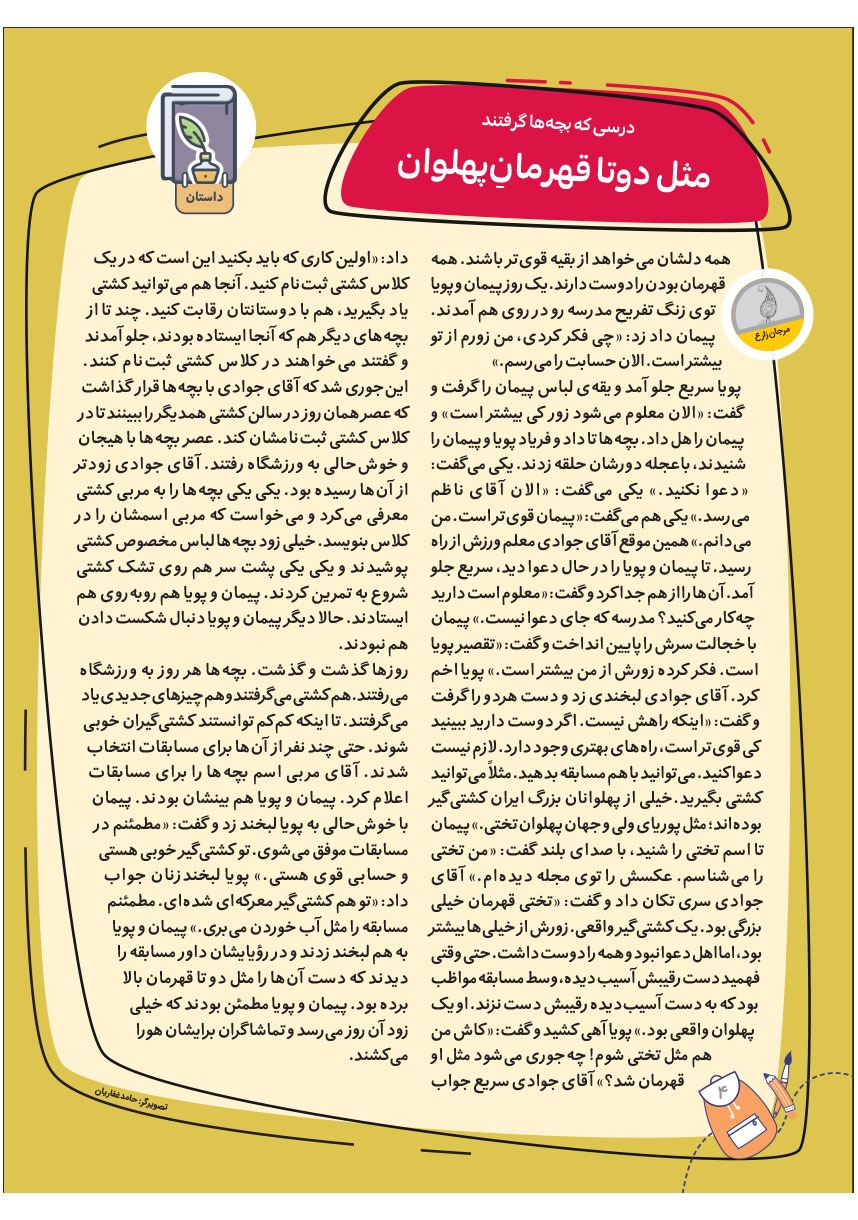 درسی که بچه‌ها گرفتند
مثل دوتا قهرمانِ‌پهلوان
داستان
مرجان زارع
همه دلشان می‌خواهد از بقیه قوی‌تر باشند. همه
قهرمان بودن را دوست دارند. یک روز پیمان و پویا
توی زنگ تفریح مدرسه رو در روی هم آمدند.
پیمان داد زد: «چی فکر کردی، من زورم از تو
بیشتر است. الان حسابت را می‌رسم.»
پویا سریع جلو آمد و یقه‌ی لباس پیمان را گرفت و
گفت: «الان معلوم می‌شود زور کی بیشتر است» و
پیمان را هل داد. بچه‌ها تا داد و فریاد پویا و پیمان را
شنیدند، با عجله دورشان حلقه زدند. یکی می‌گفت:
«دعوا نکنید.» یکی می‌گفت: «الان آقای ناظم
می‌رسد.» یکی هم می‌گفت: «پیمان قوی‌تر است. من
می‌دانم.» همین موقع آقای جوادی معلم ورزش از راه
رسید. تا پیمان و پویا را در حال دعوا دید، سریع جلو
آمد. آن‌ها را از هم جدا کرد و گفت: «معلوم است دارید
چه‌کار می‌کنید؟ مدرسه که جای دعوا نیست.» پیمان
با خجالت سرش را پایین انداخت و گفت: «تقصیر پویا
است. فکر کرده زورش از من بیشتر است.» پویا اخم
کرد. آقای جوادی لبخندی زد و دست هردو را گرفت
و گفت: «اینکه راهش نیست. اگر دوست دارید ببینید
کی قوی‌تر است، راه‌های بهتری وجود دارد. لازم نیست
دعوا کنید. می‌توانید با هم مسابقه بدهید. مثلاً می‌توانید
کشتی بگیرید. خیلی از پهلوانان بزرگ ایران کشتی‌گیر
بوده‌اند؛ مثل پوریای ولی و جهان پهلوان تختی.» پیمان
تا اسم تختی را شنید، با صدای بلند گفت: «من تختی
را می‌شناسم. عکسش را توی مجله دیده‌ام.» آقای
جوادی سری تکان داد و گفت: «تختی قهرمان خیلی
بزرگی بود. یک کشتی‌گیر واقعی. زورش از خیلی‌ها بیشتر
بود، اما اهل دعوا نبود و همه را دوست داشت. حتی وقتی
فهمید دست رقیبش آسیب دیده، وسط مسابقه مواظب
بود که به دست آسیب‌دیده رقیبش دست نزند. او یک
پهلوان واقعی بود.» پویا آهی کشید و گفت: «کاش من
هم مثل تختی شوم! چه‌جوری می‌شود مثل او
قهرمان شد؟» آقای جوادی سریع جواب
داد: «اولین کاری که باید بکنید این است که در یک
کلاس کشتی ثبت‌نام کنید. آنجا هم می‌توانید کشتی
یاد بگیرید، هم با دوستانتان رقابت کنید. چند تا از
بچه‌های دیگر هم که آنجا ایستاده بودند، جلو آمدند
و گفتند می‌خواهند در کلاس کشتی ثبت‌نام کنند.
این‌جوری شد که آقای جوادی با بچه‌ها قرار گذاشت
که عصر همان روز در سالن کشتی همدیگر را ببینند تا در
کلاس کشتی ثبت‌نامشان کند. عصر بچه‌ها با هیجان
و خوش‌حالی به ورزشگاه رفتند. آقای جوادی زودتر
از آن‌ها رسیده بود. یکی یکی بچه‌ها را به مربی کشتی
معرفی می‌کرد و می‌خواست که مربی اسمشان را در
کلاس بنویسد. خیلی زود بچه‌ها لباس مخصوص کشتی
پوشیدند و یکی یکی پشت سر هم روی تشک کشتی
شروع به تمرین کردند. پیمان و پویا هم روبه‌روی هم
ایستادند. حالا دیگر پیمان و پویا دنبال شکست دادن
هم نبودند.
روزها گذشت و گذشت. بچه‌ها هر روز به ورزشگاه
می‌رفتند. هم کشتی می‌گرفتند و هم چیزهای جدیدی یاد
می‌گرفتند. تا اینکه کم‌کم توانستند کشتی‌گیران خوبی
شوند. حتی چند نفر از آن‌ها برای مسابقات انتخاب
شدند. آقای مربی اسم بچه‌ها را برای مسابقات
اعلام کرد. پیمان و پویا هم بینشان بودند. پیمان
با خوش‌حالی به پویا لبخند زد و گفت: «مطمئنم در
مسابقات موفق می‌شوی. تو کشتی‌گیر خوبی هستی
و حسابی قوی هستی.» پویا لبخندزنان جواب
داد: «تو هم کشتی‌گیر معرکه‌ای شده‌ای. مطمئنم
مسابقه را مثل آب خوردن می‌بری.» پیمان و پویا
به هم لبخند زدند و در رؤیایشان داور مسابقه را
دیدند که دست آن‌ها را مثل دو تا قهرمان بالا
برده بود. پیمان و پویا مطمئن بودند که خیلی
زود آن روز می‌رسد و تماشاگران برایشان هورا
می‌کشند.
تصویرگر: حامد غفاریان
۴